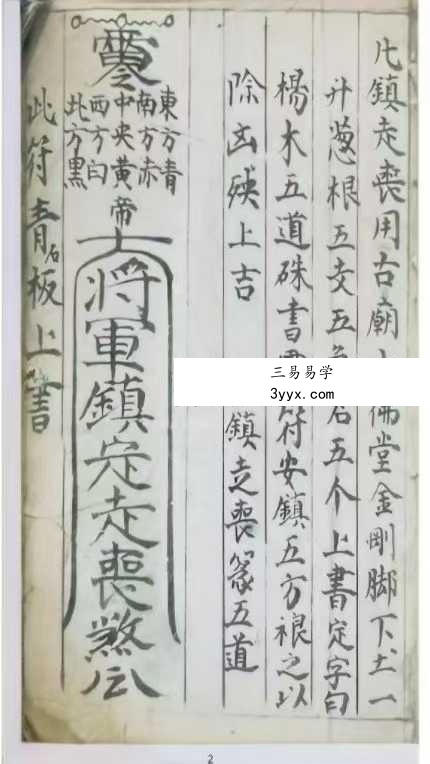 凡鎮走喪用古廟佛堂金剛脚下土一
升葱根五支五石五个上書定字曰
楊木五道硃書符安鎮五方禳之以
除凶殃上吉
鎮走喪篆五道
東方青
南方赤
中央黃
西方白
北方黑
帝
將軍鎮定走喪煞
此符青石板上書
三易易学
3yyx.com
2